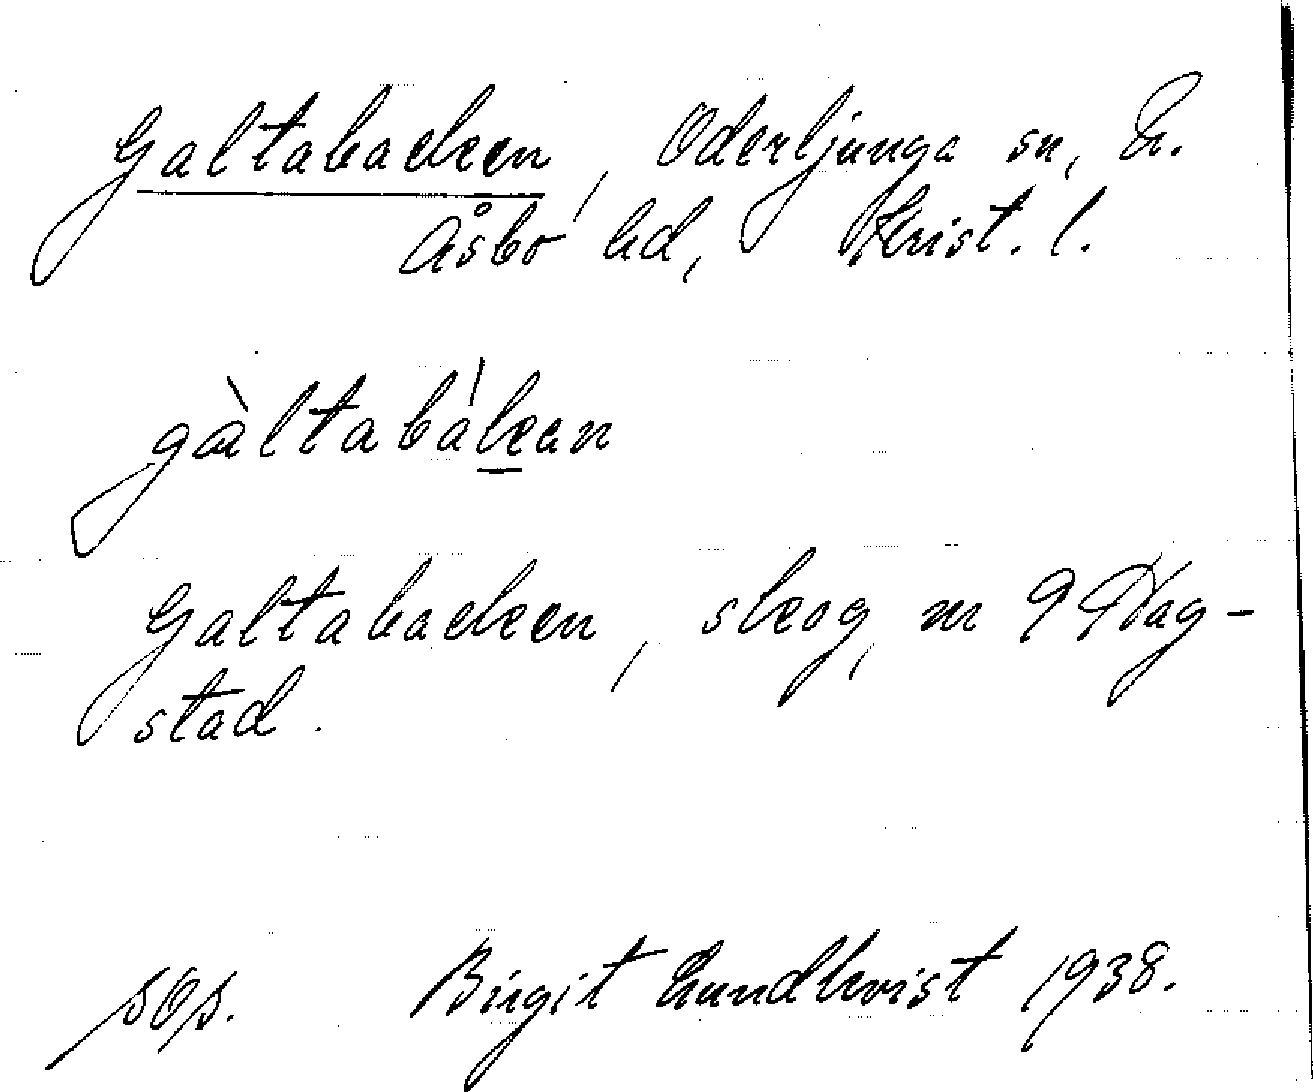 Galtabacken, Oderljunga sn, N.
Åsbo hd, Krist. l.
gàltabákan
Galtabacken, skog, nr 9 Hag-
stad.
Birgit Lundkvist 1938.